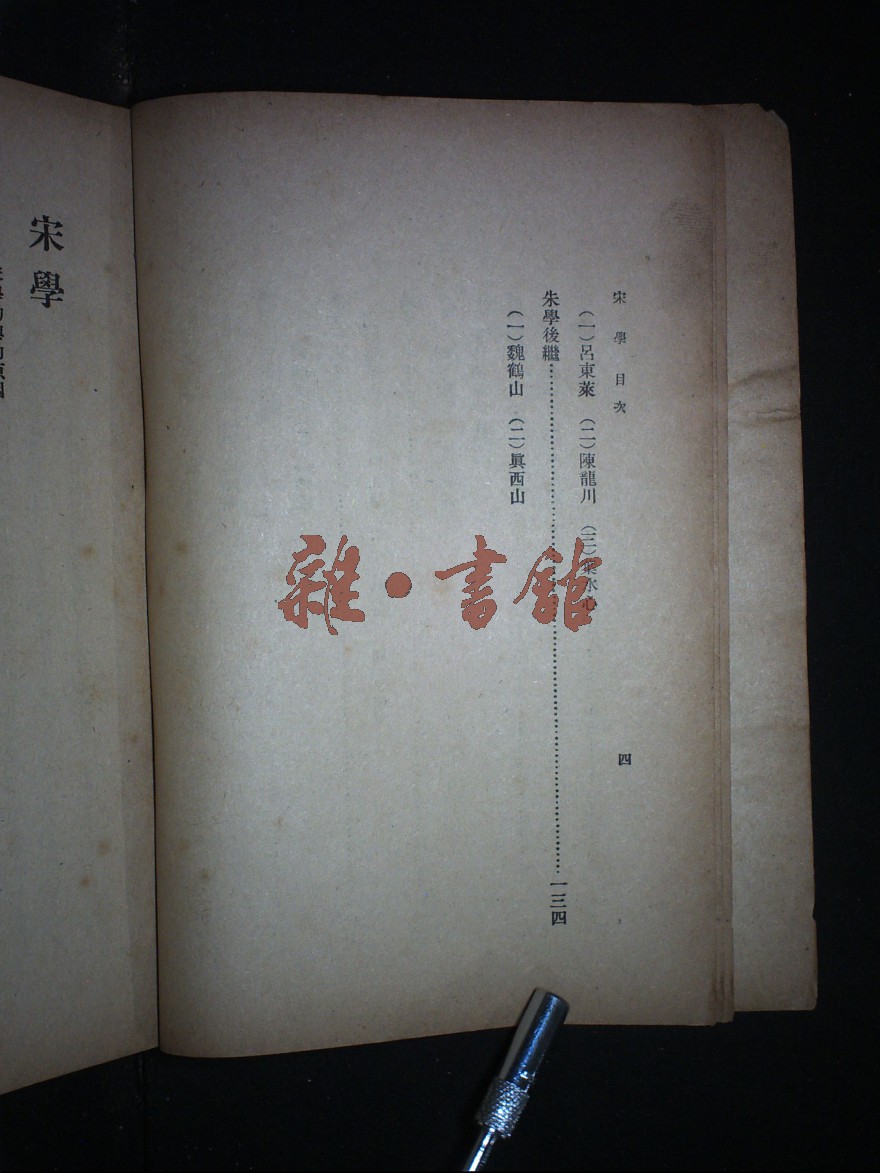 宋學目次
（一）呂東萊　（二）陳龍川　（三）葉水心
朱學後繼……一三四
（一）魏鶴山　（二）眞西山
四
宋學
雜・書館